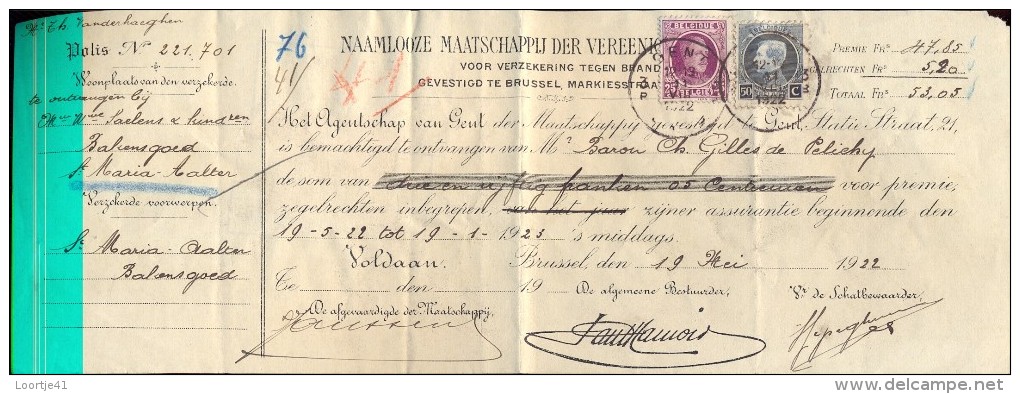 Polis No 221.701
Woonplaats van den verzekerde.
te ontvangen bij
Bakensgoed
St Maria-Aalter
Verzekerde voorwerpen.
St Maria-Aalter
Bakensgoed
76
41
NAAMLOOZE MAATSCHAPPIJ DER VEREENIG
VOOR VERZEKERING TEGEN BRAND
GEVESTIGD TE BRUSSEL, MARKIESSTRAA
PREMIE FRs 47,85
GELRECHTEN FRs 5,20
TOTAAL FRs 53,05
25
25
BELGIË
50 C
1922
1922
Het Agentschap van Gent der Maatschappij, gevestigd te Gent, Statie Straat, 21,
is bemachtigd te ontvangen van Mr Baron Ch. Gilles de Pelichy
de som van drie en vijftig franken 05 Centiemen voor premie,
zegelrechten inbegrepen, van het jaar zijner assurantie beginnende den
19-5-22 tot 19-1-1923 's middags.
Voldaan. Brussel, den 19 Mei 1922
Te den 19
De algemeene Bestuurder, Vr de Schatbewaarder,
De afgevaardigde der Maatschappij,
Loortje41
© delcampe.net